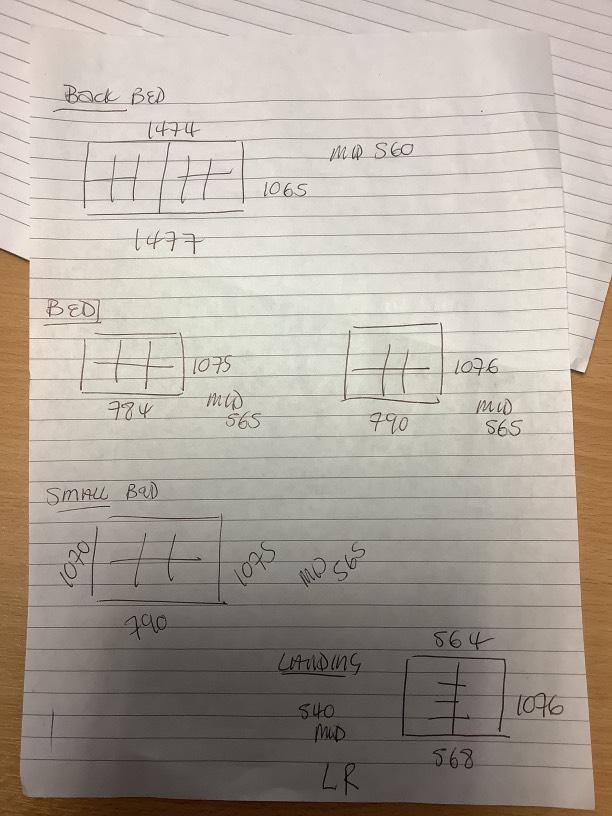 Back BED
1474
MID 560
1065
1477
BED
1075
784
MID
565
1076
790
MID
565
SMALL BED
1070
1075
MID 565
790
LANDING
564
540
MID
1076
568
LR